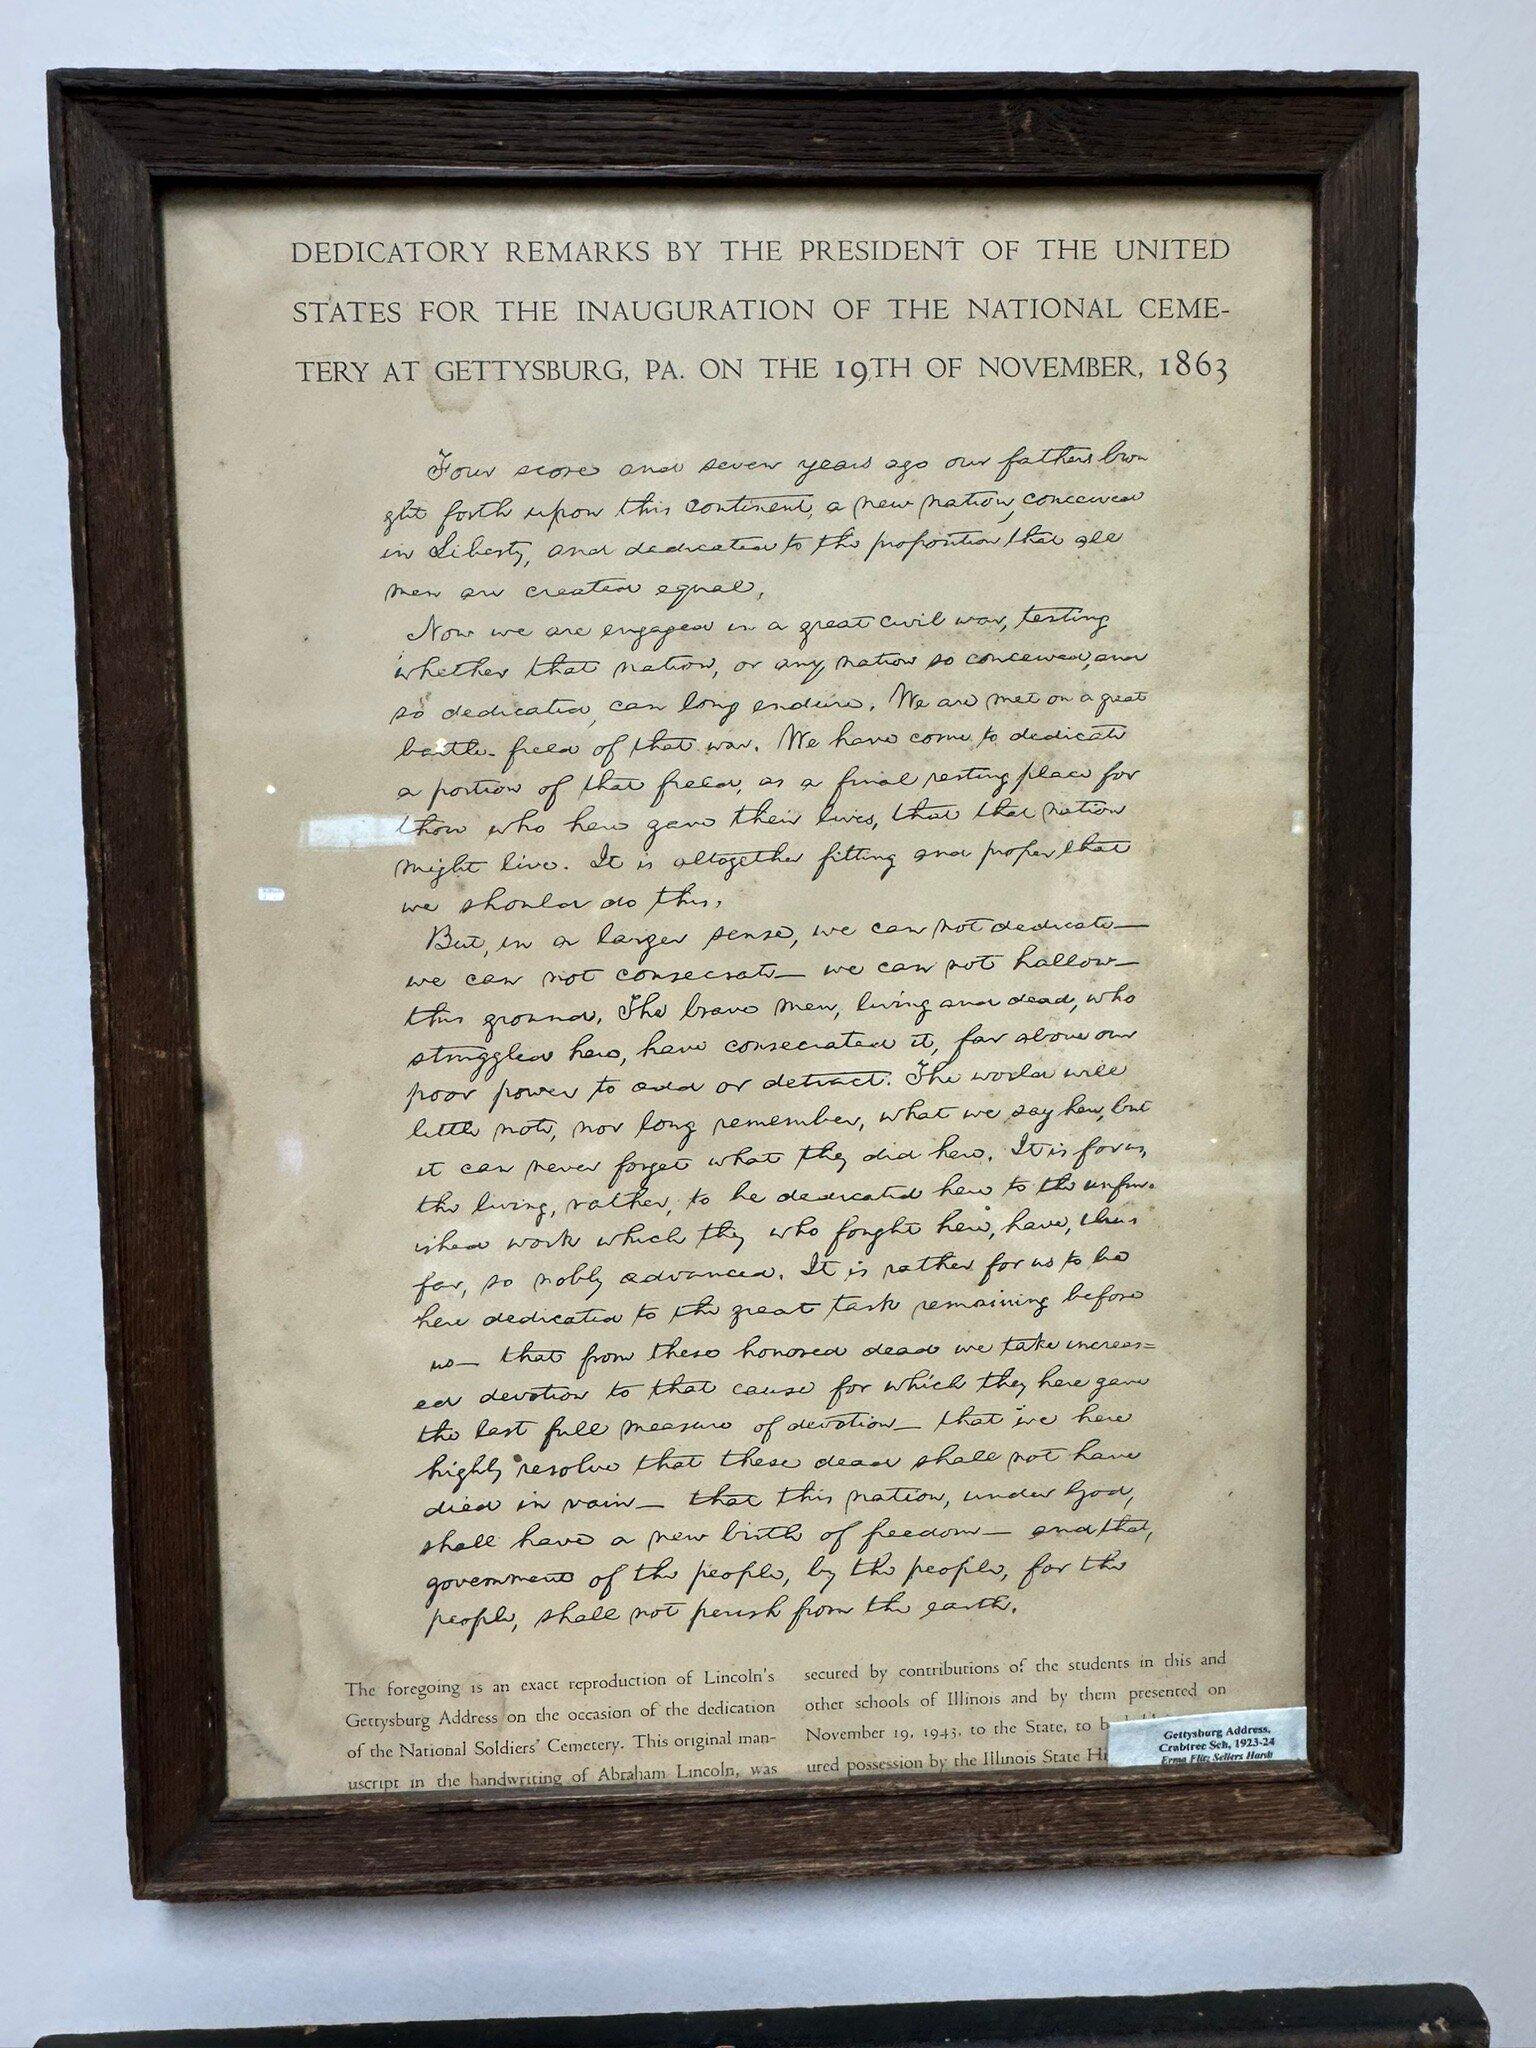 DEDICATORY REMARKS BY THE PRESIDENT OF THE UNITED
STATES FOR THE INAUGURATION OF THE NATIONAL CEME-
TERY AT GETTYSBURG, PA. ON THE 19TH OF NOVEMBER, 1863
Four score and seven years ago our fathers brou
ght forth upon this continent, a new nation, conceived
in Liberty, and dedicated to the proposition that all
men are created equal.
Now we are engaged in a great civil war, testing
whether that nation, or any nation so conceived, and
so dedicated, can long endure. We are met on a great
battle-field of that war. We have come to dedicate
a portion of that field, as a final resting place for
those who here gave their lives, that that nation
might live. It is altogether fitting and proper that
we should do this.
But, in a larger sense, we can not dedicate—
we can not consecrate— we can not hallow—
this ground. The brave men, living and dead, who
struggled here, have consecrated it, far above our
poor power to add or detract. The world will
little note, nor long remember, what we say here, but
it can never forget what they did here. It is for us,
the living, rather, to be dedicated here to the unfin-
ished work which they who fought here, have, thus
far, so nobly advanced. It is rather for us to be
here dedicated to the great task remaining before
us— that from these honored dead we take increas=
ed devotion to that cause for which they here gave
the last full measure of devotion— that we here
highly resolve that these dead shall not have
died in vain— that this nation, under God,
shall have a new birth of freedom— and that,
government of the people, by the people, for the
people, shall not perish from the earth.
The foregoing is an exact reproduction of Lincoln's
Gettysburg Address on the occasion of the dedication
of the National Soldiers' Cemetery. This original man-
uscript in the handwriting of Abraham Lincoln, was
secured by contributions of the students in this and
other schools of Illinois and by them presented on
November 19, 1943, to the State, to
ured possession by the Illinois State
Gettysburg Address,
Crabtree Sch, 1923-24
Erma Flitz Sellers Harsh